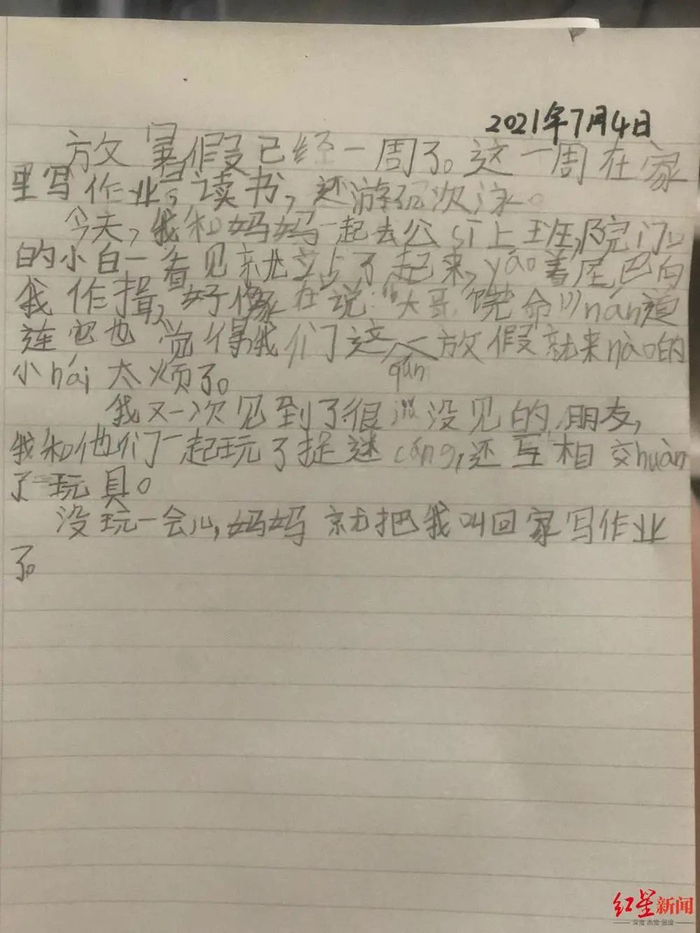 2021年7月4日
放暑假已经一周了。这一周在家
里写作业与读书，还游了次泳。
今天，我和妈妈一起去公sī上班，院门口
的小白一看见就立占了起来，yáo着尾巴向
我作揖，好像在说：“大哥饶命”！nán道
连它也觉得我们这qún放假就来nào的
小hái太烦了。
我又一次见到了很没见的朋友，
我和他们一起玩了捉迷cáng，还互相交huàn
了玩具。
没玩一会儿，妈妈就把我叫回家写作业
了。
红星新闻
深度 态度 温度